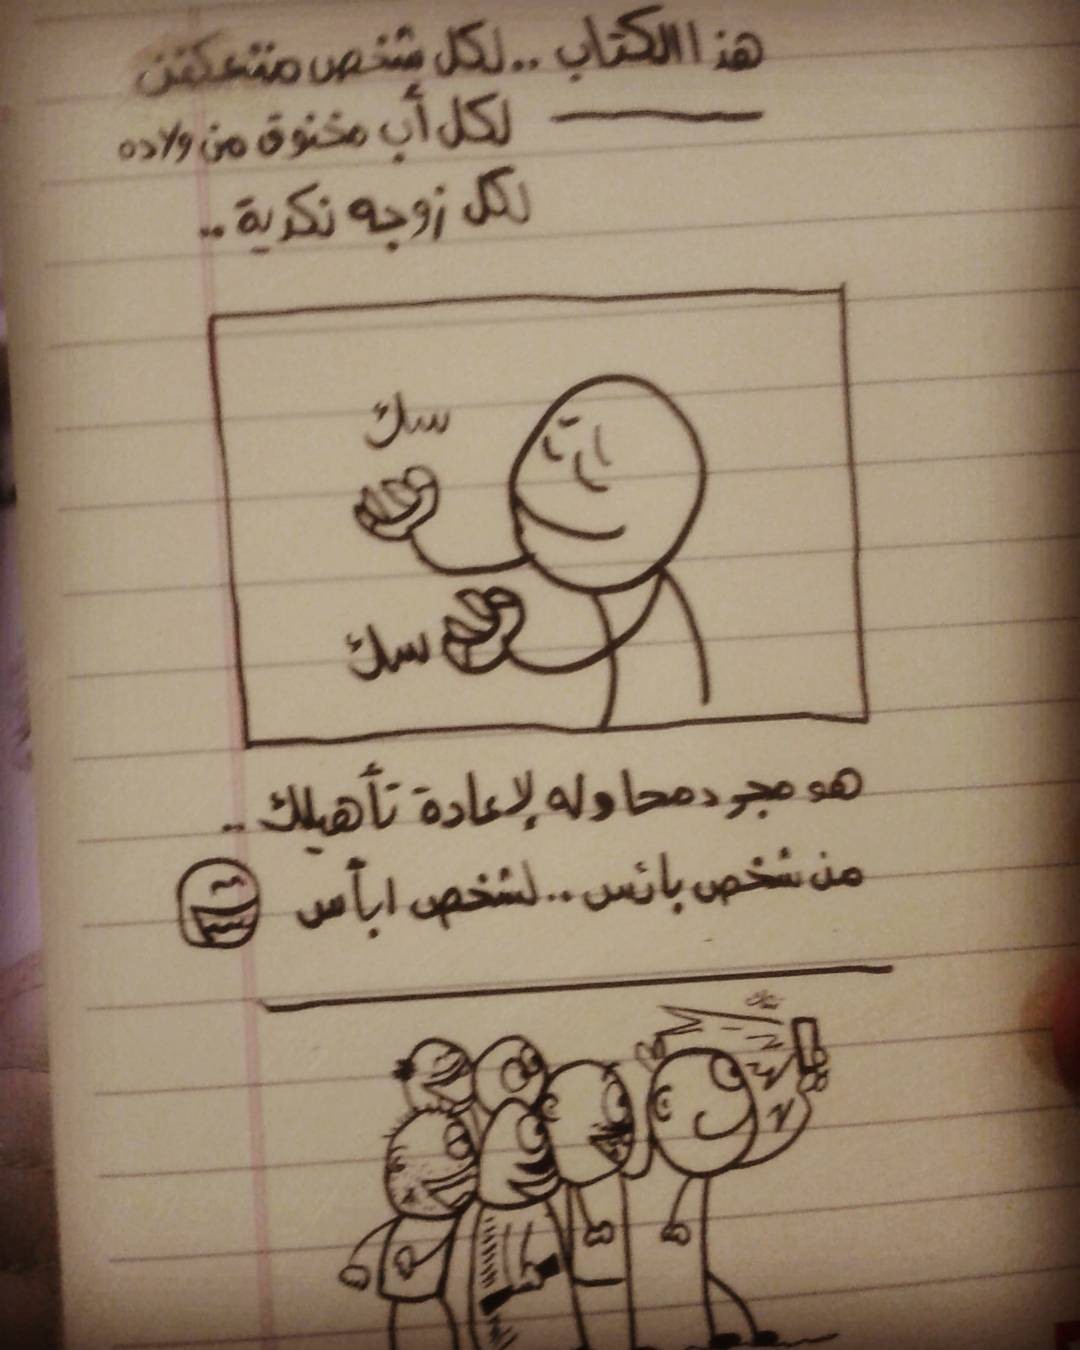 هذا الكتاب .. لكل شخص متعكنن
لكل أب مخنوق من ولاده
لكل زوجه نكدية ..
سك
سك
هو مجرد محاوله لإعادة تأهيلك ..
من شخص بائس .. لشخص ابأس